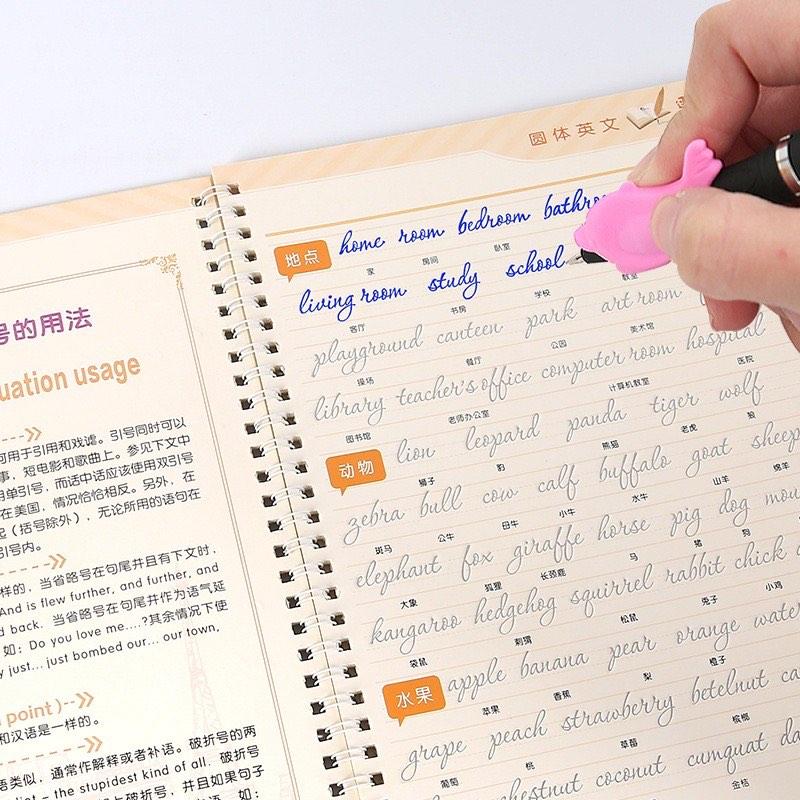 号的用法
uation usage
可用于引用和戏谑。引号同时可以
事，短电影和歌曲上。参见下文中
用单引号，而话中话应该使用双引号
在美国，情况恰恰相反。另外，在
起（括号除外），无论所用的语句在
引号内。
样的，当省略号在句尾并且有下文时，
And is flew further, and further, and
d back. 当省略号在句尾并作为语气延
如：Do you love me....?其余情况下使
y just... just bombed our... our town,
point)
和汉语是一样的。
语类似，通常作解释或者补语。破折号的两
diot – the stupidest kind of all. 破折号
并且如果句子
如：
圆体英文
地点
home room bedroom
家 房间 卧室
living room study school
客厅 书房 学校 教室
playground canteen park art room
操场 餐厅 公园 美术馆
library teacher's office computer room hospital
图书馆 老师办公室 计算机教室 医院
动物
lion leopard panda tiger wolf
狮子 豹 熊猫 老虎 狼
zebra bull cow calf buffalo goat sheep
斑马 公牛 母牛 小牛 水牛 山羊 绵羊
elephant fox giraffe horse pig dog
大象 狐狸 长颈鹿 马 猪 狗
kangaroo hedgehog squirrel rabbit chick
袋鼠 刺猬 松鼠 兔子 小鸡
水果
apple banana pear orange
苹果 香蕉 梨 橙子
grape peach strawberry betelnut
葡萄 桃 草莓 槟榔
chestnut coconut cumquat
金桔